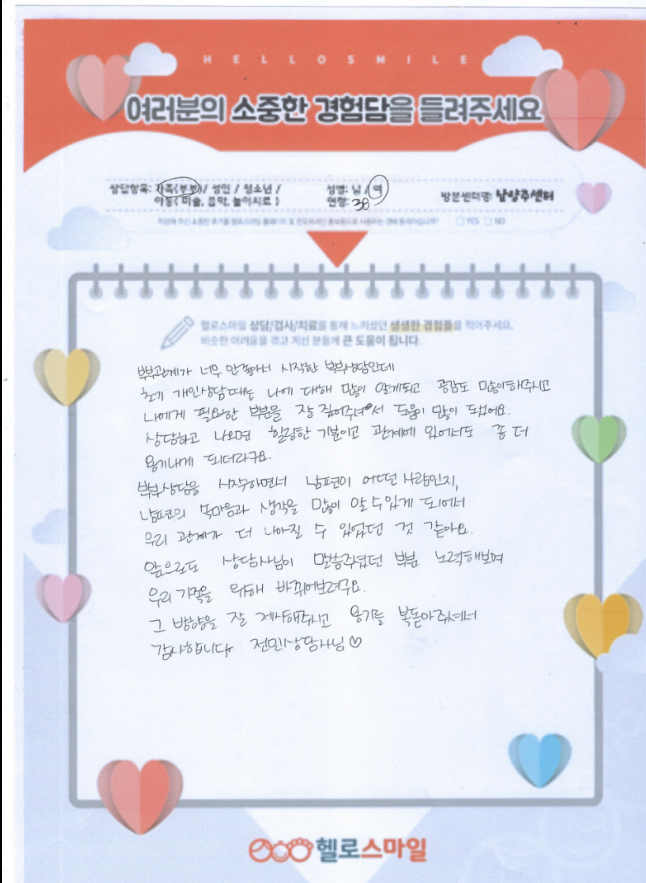 HELLOSMILE
여러분의 소중한 경험담을 들려주세요
상담항목: 가족(부부) / 성인 / 청소년 /
아동( 미술, 음악, 놀이치료 )
성별: 남 / 여
연령: 38
방문센터명: 남양주센터
YES NO
헬로스마일 상담/검사/치료를 통해 느끼셨던 생생한 경험들을 적어주세요.
비슷한 어려움을 겪고 계신 분들께 큰 도움이 됩니다.
부부관계가 너무 안좋아서 시작한 부부상담인데
초기 개인상담때는 나에 대해 많이 알게되고 공감도 많이해주시고
나에게 필요한 부분을 잘 짚어주셔서 도움이 많이 되었어요.
상담하고 나오면 힐링한 기분이고 관계에 있어서도 좀 더
용기내게 되더라구요.
부부상담을 시작하면서 남편이 어떤 사람인지,
남편의 속마음과 생각을 많이 알 수 있게 되어서
우리 관계가 더 나아질 수 있었던 것 같아요.
앞으로도 상담사님이 말씀주셨던 부분 노력해보며
우리 가족을 위해 바뀌어보려구요.
그 방향을 잘 제시해주시고 용기를 북돋아주셔서
감사합니다 전민상담사님♡
헬로스마일